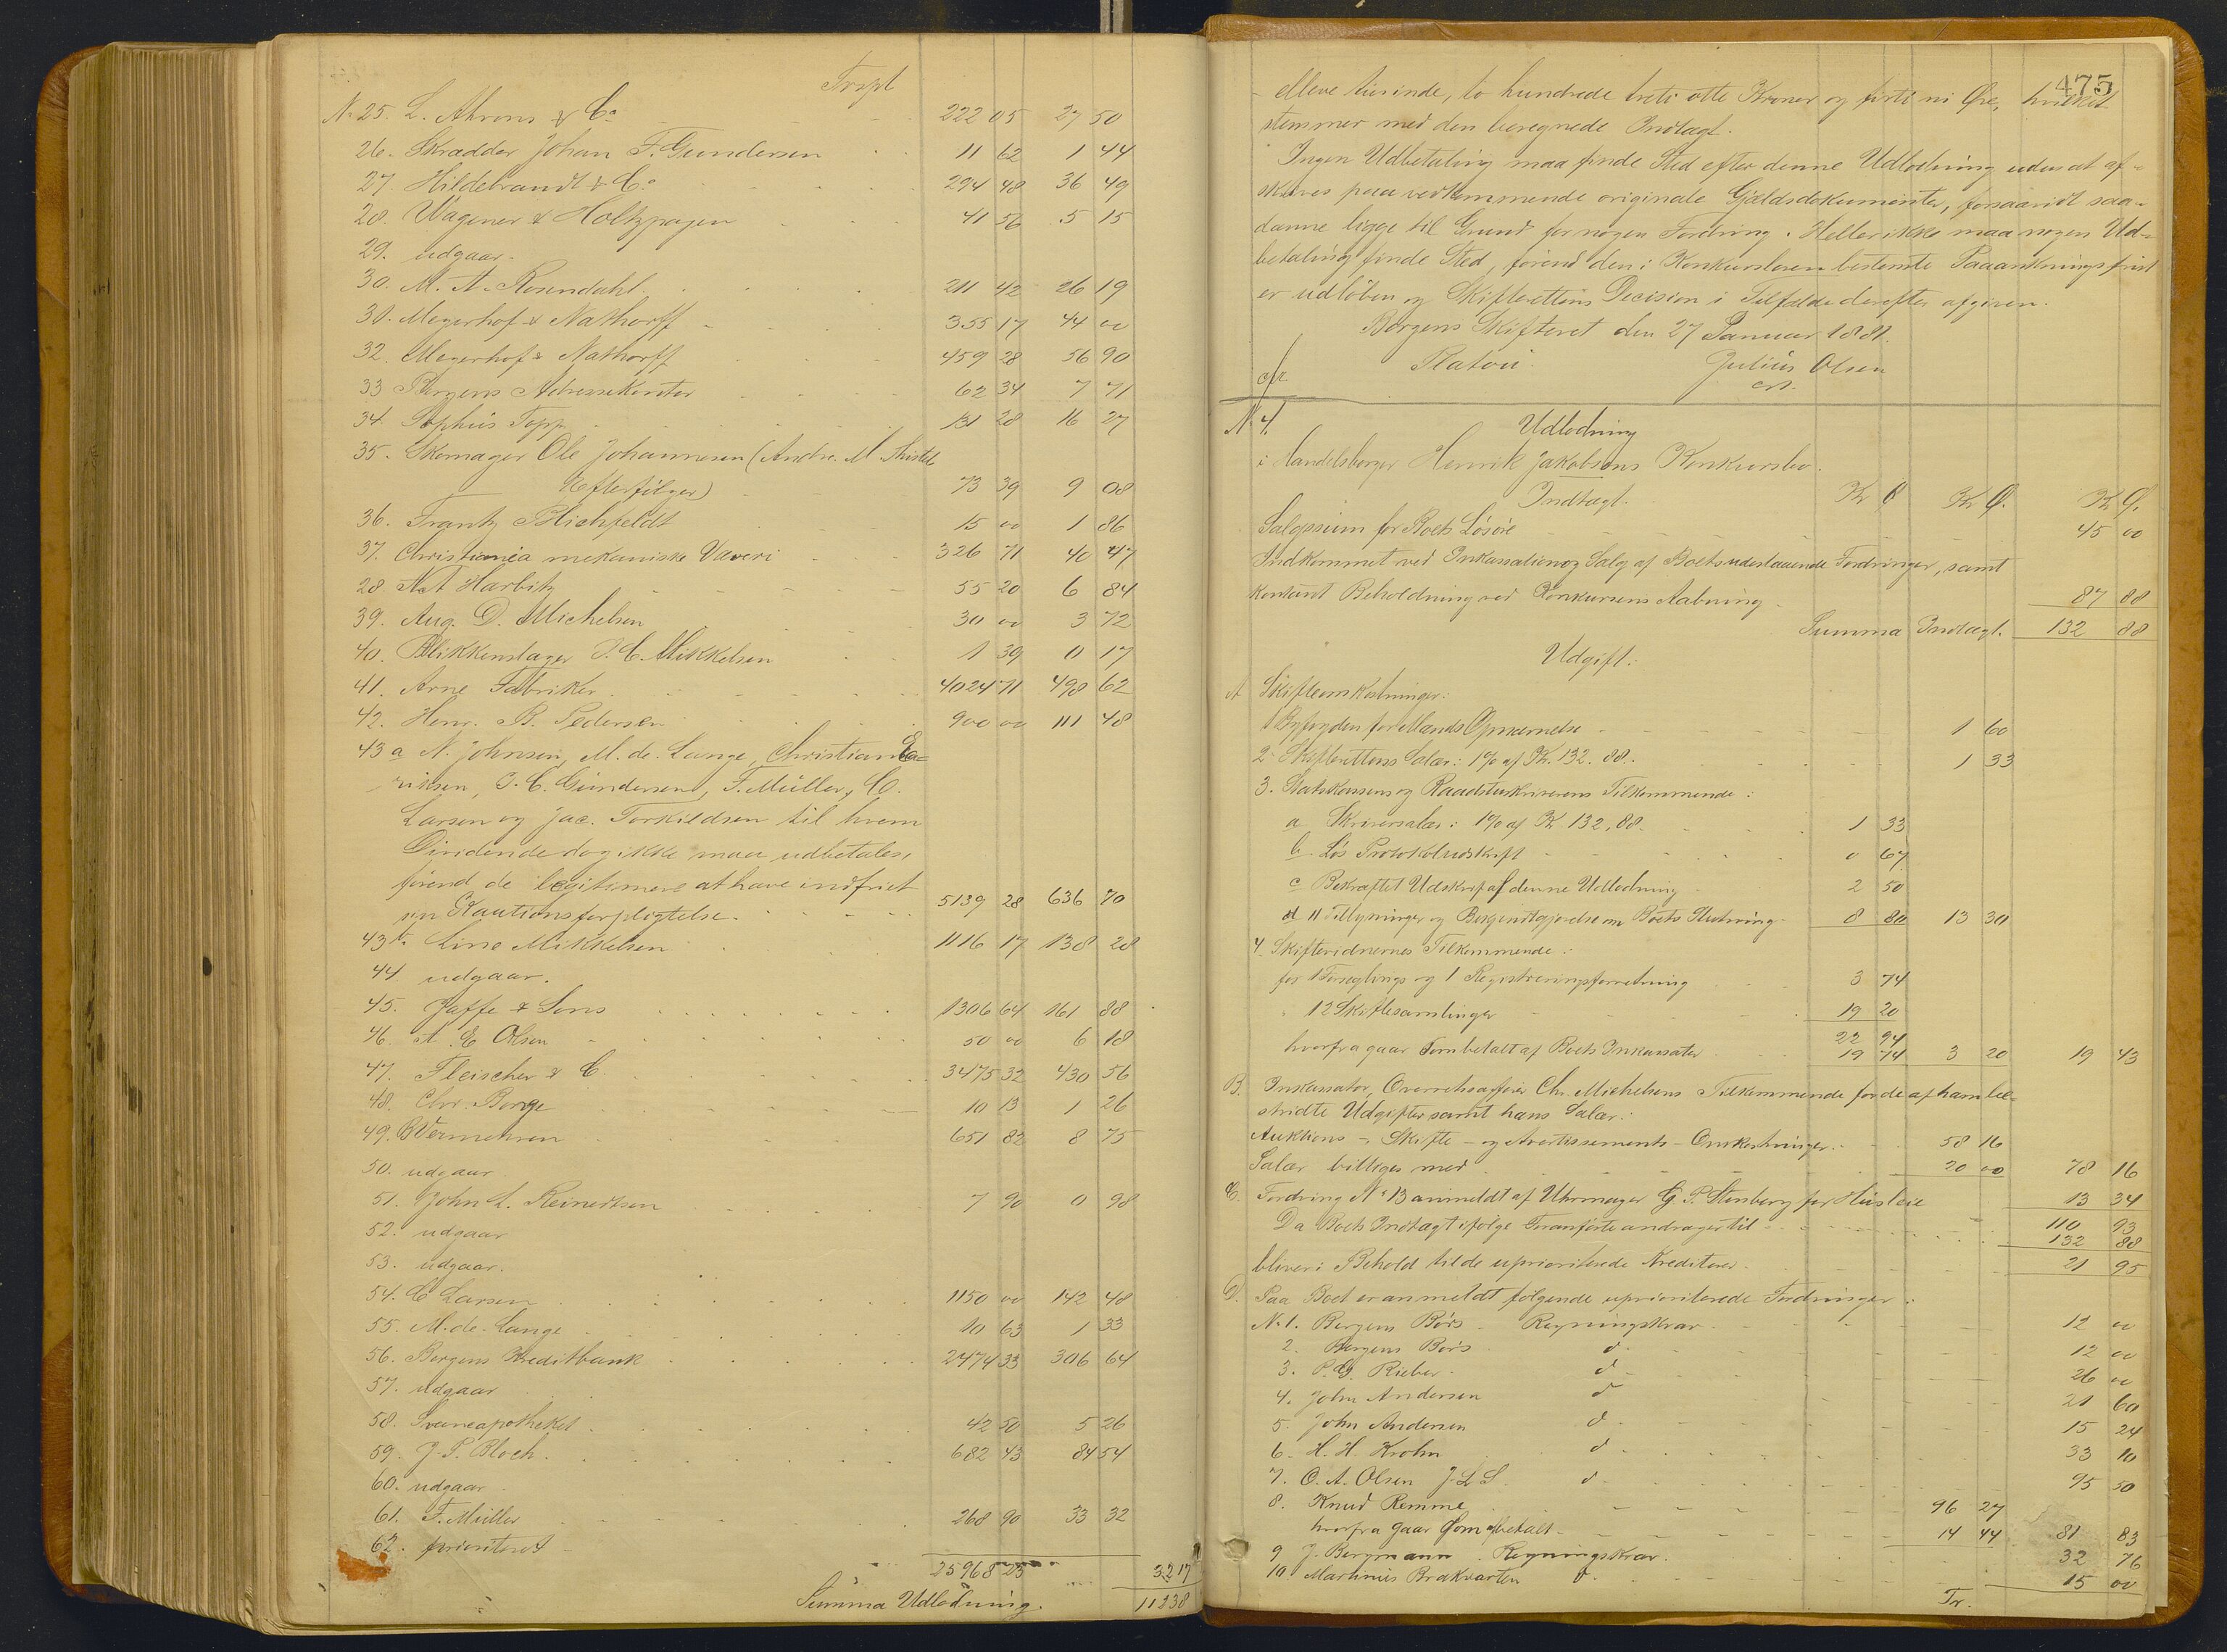 Trspt
No 25. L. Ahrens & Co 222 05 27 50
26. Skrædder Johan F. Gundersen 11 62 1 44
27. Hildebrandt & Co 294 48 36 49
28. Wagener & Holtzpagen 41 56 5 15
29. udgaar.
30. M. A. Rosendahl 211 42 26 19
31. Meyerhof & Nathorff 355 17 44 00
32. Meyerhof & Nathorff 459 28 56 90
33 Bergens Adressekontor 62 34 7 71
34. Sophus Topp 131 28 16 27
35. Skomager Ole Johannesen (Andr. M.
Efterfølger) 73 39 9 08
36. Frantz Blichfeldt 15 00 1 86
37. Christiania mekaniske Væveri 326 71 40 47
28 Harbitz 55 20 6 84
39. Aug. D. Michelsen 30 00 3 72
40. Blikkenslager J. C. Mikkelsen 1 39 0 17
41. Arne Fabriker 4024 71 498 62
42. Henr. B. Pedersen 900 00 111 48
43 a N. Johnsen, M. de Lange, Christian
J. C. Gundersen, F. Müller, C.
Larsen og Jac. Torkildsen til hvem
Dividende dog ikke maa udbetales,
førend de legitimere at have indfriet
sin Kautionsforpligtelse. 5139 28 636 70
43 b. Line Mikkelsen 1116 17 138 28
44. udgaar.
45. Jaffe & Sons 1306 64 161 88
46. A. E. Olsen 50 00 6 18
47. Fleischer & C. 3475 32 430 56
48. Chr. Borge 10 13 1 26
49. Vermehren 651 82 8 75
50. udgaar
51. John L. Reinertsen 7 90 0 98
52. udgaar
53. udgaar.
54. C Larsen 1150 00 142 48
55. M. de. Lange 10 63 1 33
56. Bergens Kreditbank 2474 33 306 64
57. udgaar
58. Svaneapotheket 42 50 5 26
59. J. P. Bloch. 682 43 84 54
60. udgaar
61. F. Müller 268 90 33 32
62. prioriteret
25968 25 3217
Summa Udlodning. 11238
475
elleve tusinde, to hundrede treti otte Kroner og firti ni Øre, hvilket
stemmer med den beregnede Indtægt.
Ingen Udbetaling maa finde Sted efter denne Udlodning uden at af-
skrives paa vedkommende originale Gjældsdokumenter, forsaavidt saa-
danne ligge til Grund for nogen Fordring. Heller ikke maa nogen Ud-
betaling finde Sted, førend den i Konkursloven bestemte Paaankningsfrist
er udløben og Skifterettens Decision i Tilfælde derefter afgiven.
Bergens Skifteret den 27 Januar 1881.
Platou. Julius Olsen
cst.
No 4. Udlodning
i Handelsborger Henrik Jakobsens Konkursbo.
Indtægt. Kr Ø Kr Ø. Kr Ø.
Salgssum for Boets Løsøre 45 00
Indkommet ved Inkassation og Salg af Boets udestaaende Fordringer, samt
Kontant Beholdning ved Konkursens Aabning 87 88
Summa Indtægt. 132 88
Udgift.
A Skifteomkostninger:
1 Byfogden for Mands Opnævnelse 1 60
2 Skifterettens Salær: 1% af Kr. 132.88. 1 33
3. Statskassens og Raadstuskriverens Tilkommende:
a Skriversalær: 1% af Kr 132,88. 1 33
b. Løs Protokoludskrift 0 67
c Bekræftet Udskrift af denne Udlodning 2 50
d 11 Tillysninger og Bekjendtgjørelse om Boets Slutning 8 80 13 30
4. Skiftevidnernes Tilkommende:
for 1 Forseglings og 1 Registreringsforretning 3 74
12 Skiftesamlinger 19 20
22 94
hvorfra gaar som betalt af Boets Inkassator 19 74 3 20 19 43
B. Inkassator, Overretssagfører Chr. Michelsens Tilkommende for de af ham be-
stridte Udgifter samt hans Salær:
Auktions-, Skifte- og Avertissements-Omkostninger 58 16
Salær billiges med 20 00 78 16
C. Fordring No 13 anmeldt af Uhrmager G. P. Stensberg for Husleie 13 34
110 93
Da Boets Indtægt ifølge Foranførte andrager til 132 88
bliver i Behold til de uprioriterede Kreditorer 21 95
D. Paa Boet er anmeldt følgende uprioriterede Fordringer:
No 1. Bergens Børs Regningskrav 12 00
2. Bergens Børs d 12 00
3. P. G. Rieber d 26 00
4. John Andersen d 21 60
5. John Andersen d 15 24
6. H. H. Krohn d 33 10
7. O. A. Olsen J. L S. d 95 50
8. Knud Remme 96 27
hvorfra gaar som betalt 14 44 81 83
9 J. Bergmann Regningskrav. 32 76
10 Martinus Brakvarten d 15 00
Tr.